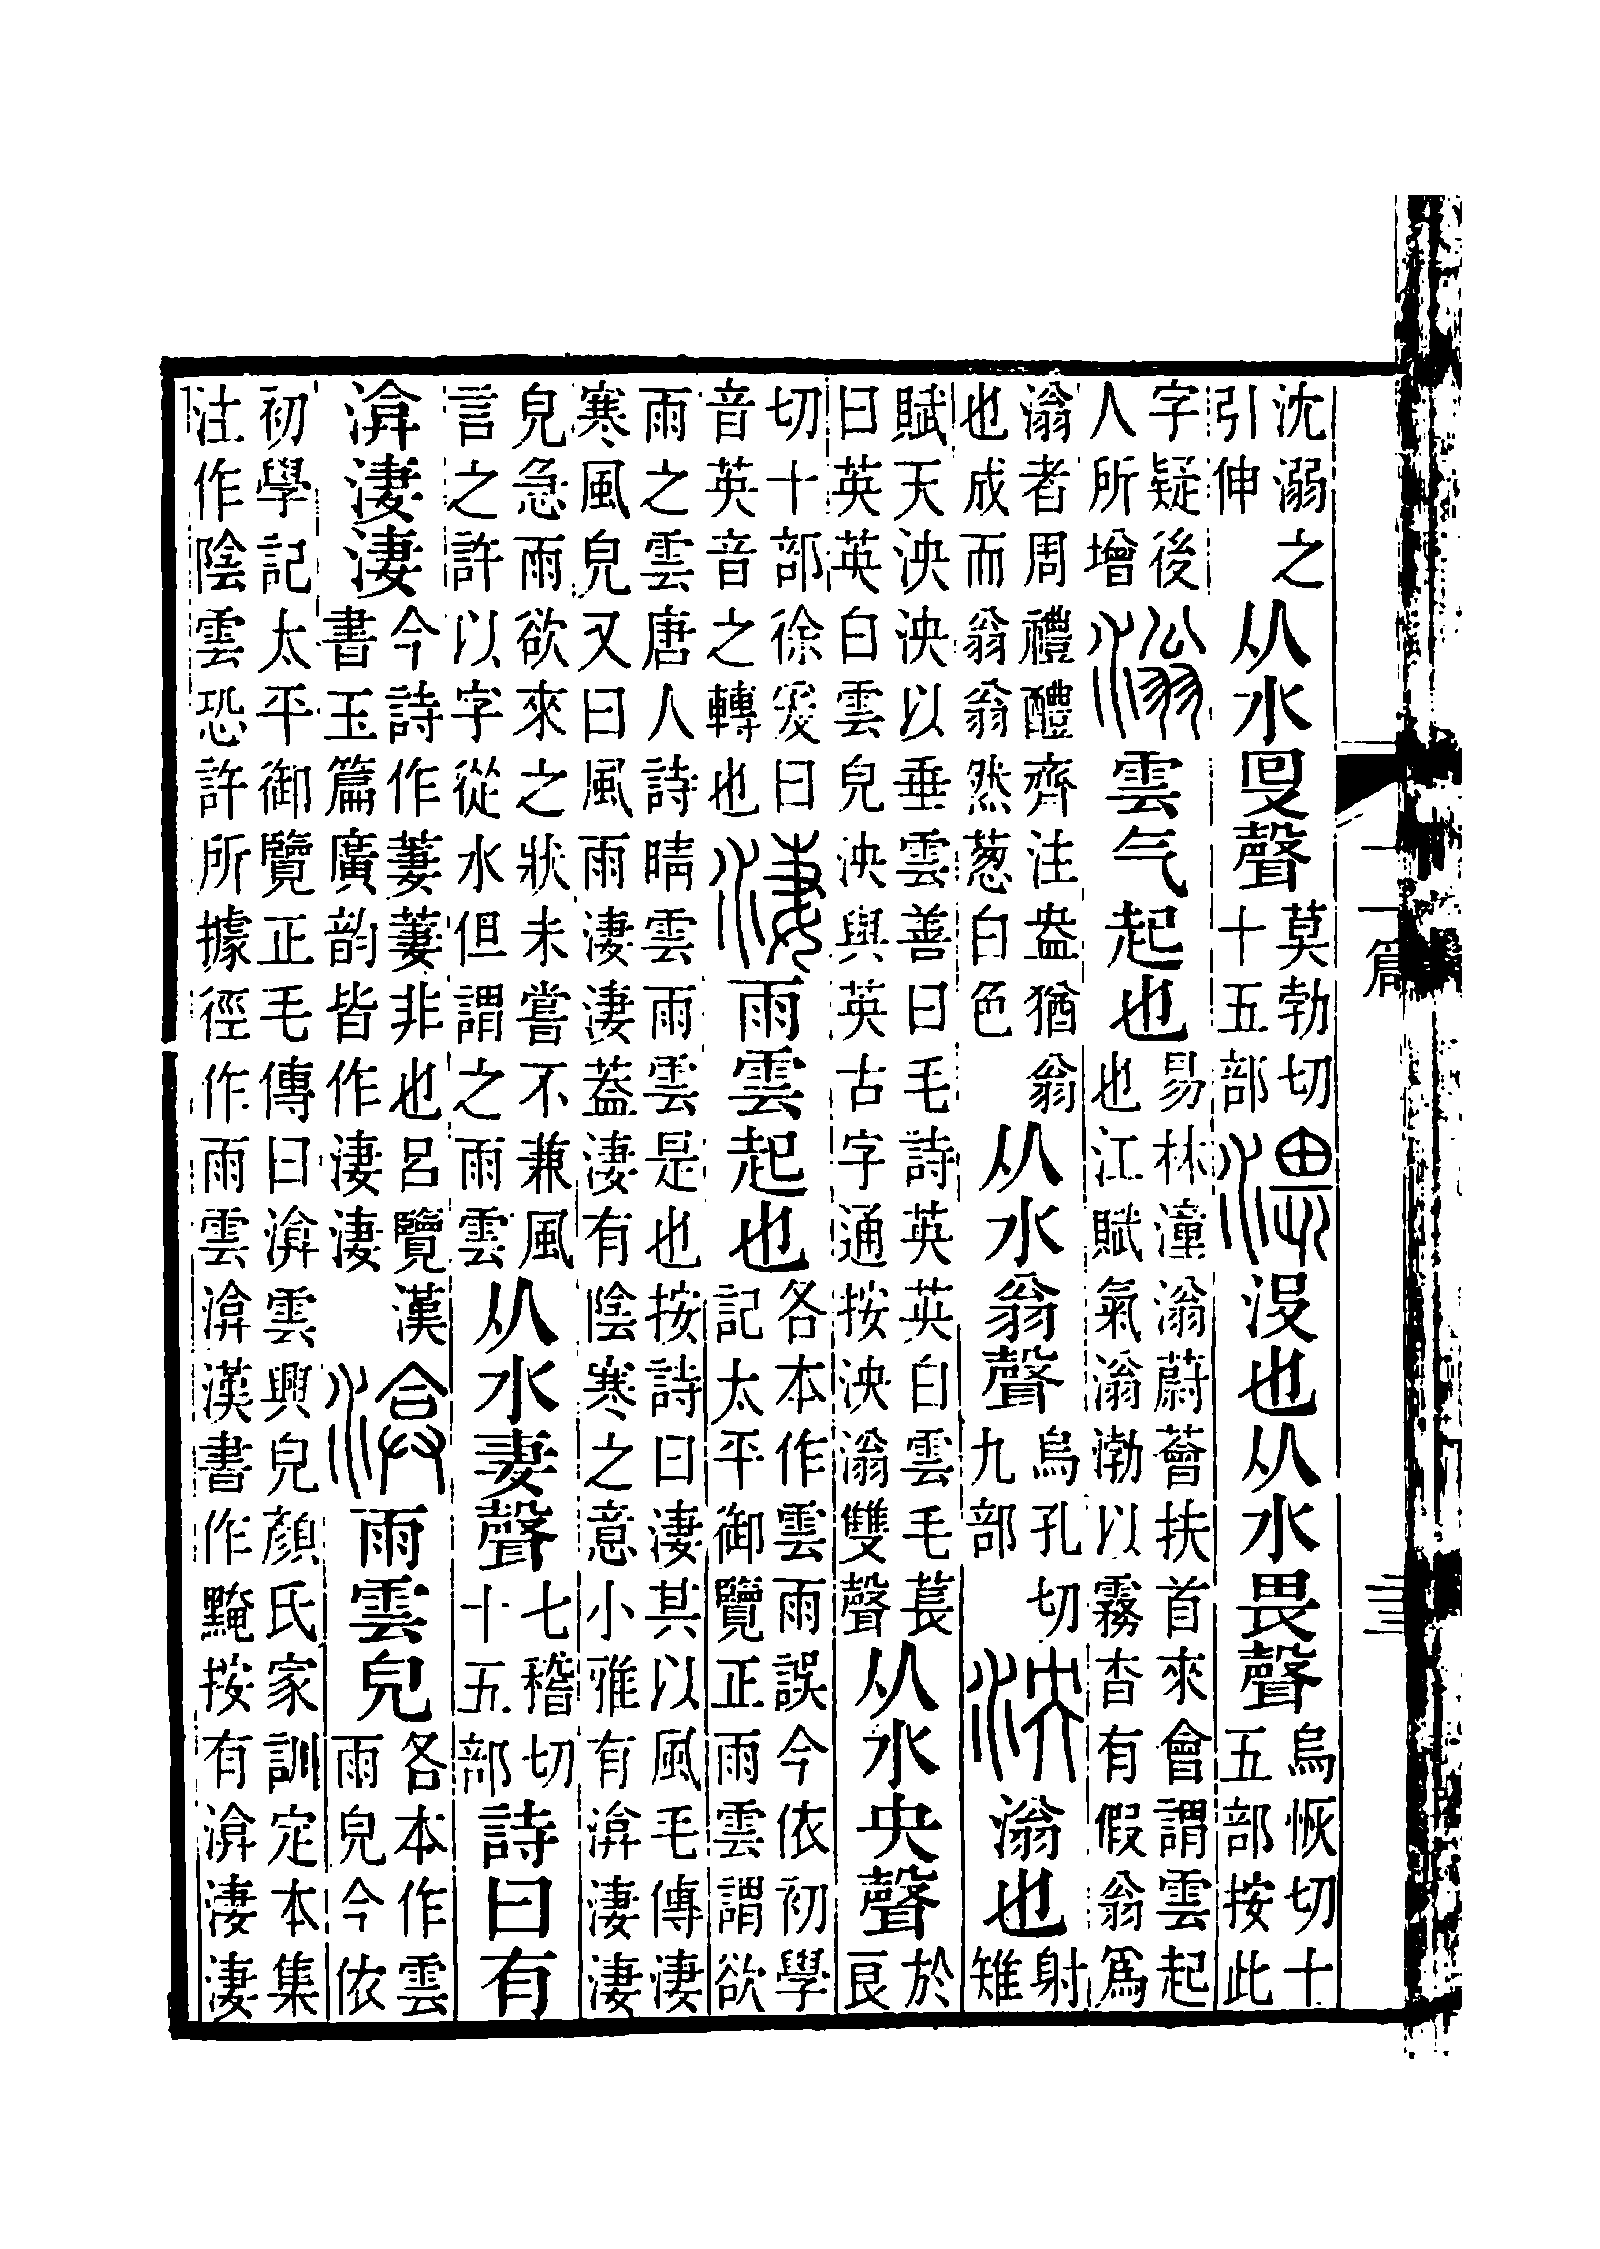 沈溺之引伸从水𠬸聲莫勃切十五部渨沒也从水畏聲烏恢切十五部按此
字疑後人所增滃雲气起也易林潼滃蔚薈扶首來會謂雲起也江賦氣滃渤以霧杳有假翁爲
滃者周禮醴齊注盎猶翁也成而翁翁然葱白色从水翁聲烏孔切九部泱滃也射雉
賦天泱泱以垂雲善曰毛詩英英白雲毛萇曰英英白雲皃泱與英古字通按泱滃雙聲从水央聲於良
切十部徐爰曰音英音之轉也淒雨雲起也各本作雲雨誤今依初學記太平御覽正雨雲謂欲
雨之雲唐人詩晴雲雨雲是也按詩曰淒其以風毛傳淒寒風皃又曰風雨淒淒蓋淒有陰寒之意小雅有渰淒淒
皃急雨欲來之狀未嘗不兼風言之許以字從水但謂之雨雲从水妻聲七稽切十五部詩曰有
渰淒淒今詩作萋萋非也呂覽漢書玉篇廣韵皆作淒淒渰雨雲皃各本作雲雨皃今依
初學記太平御覽正毛傳曰渰雲興皃顏氏家訓定本集注作陰雲恐許所據徑作雨雲渰漢書作黤按有渰淒淒